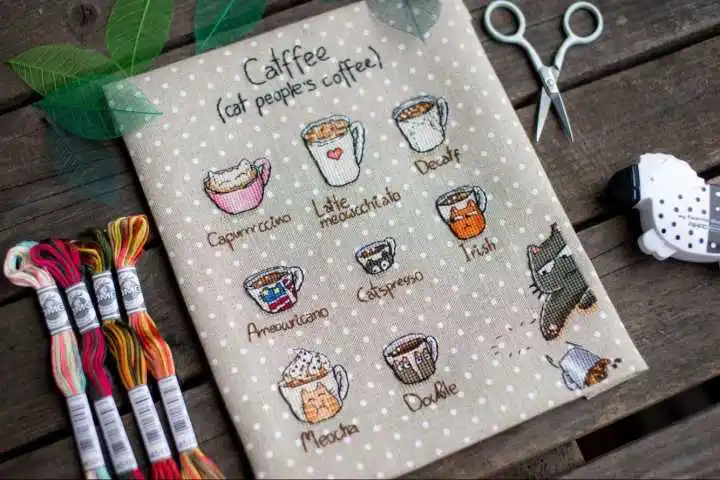 Catffee
(cat people's coffee)
Capurrccino
Latte
meowcchiato
Decaf
Irish
Catspresso
Ameowricano
Meocha
Double